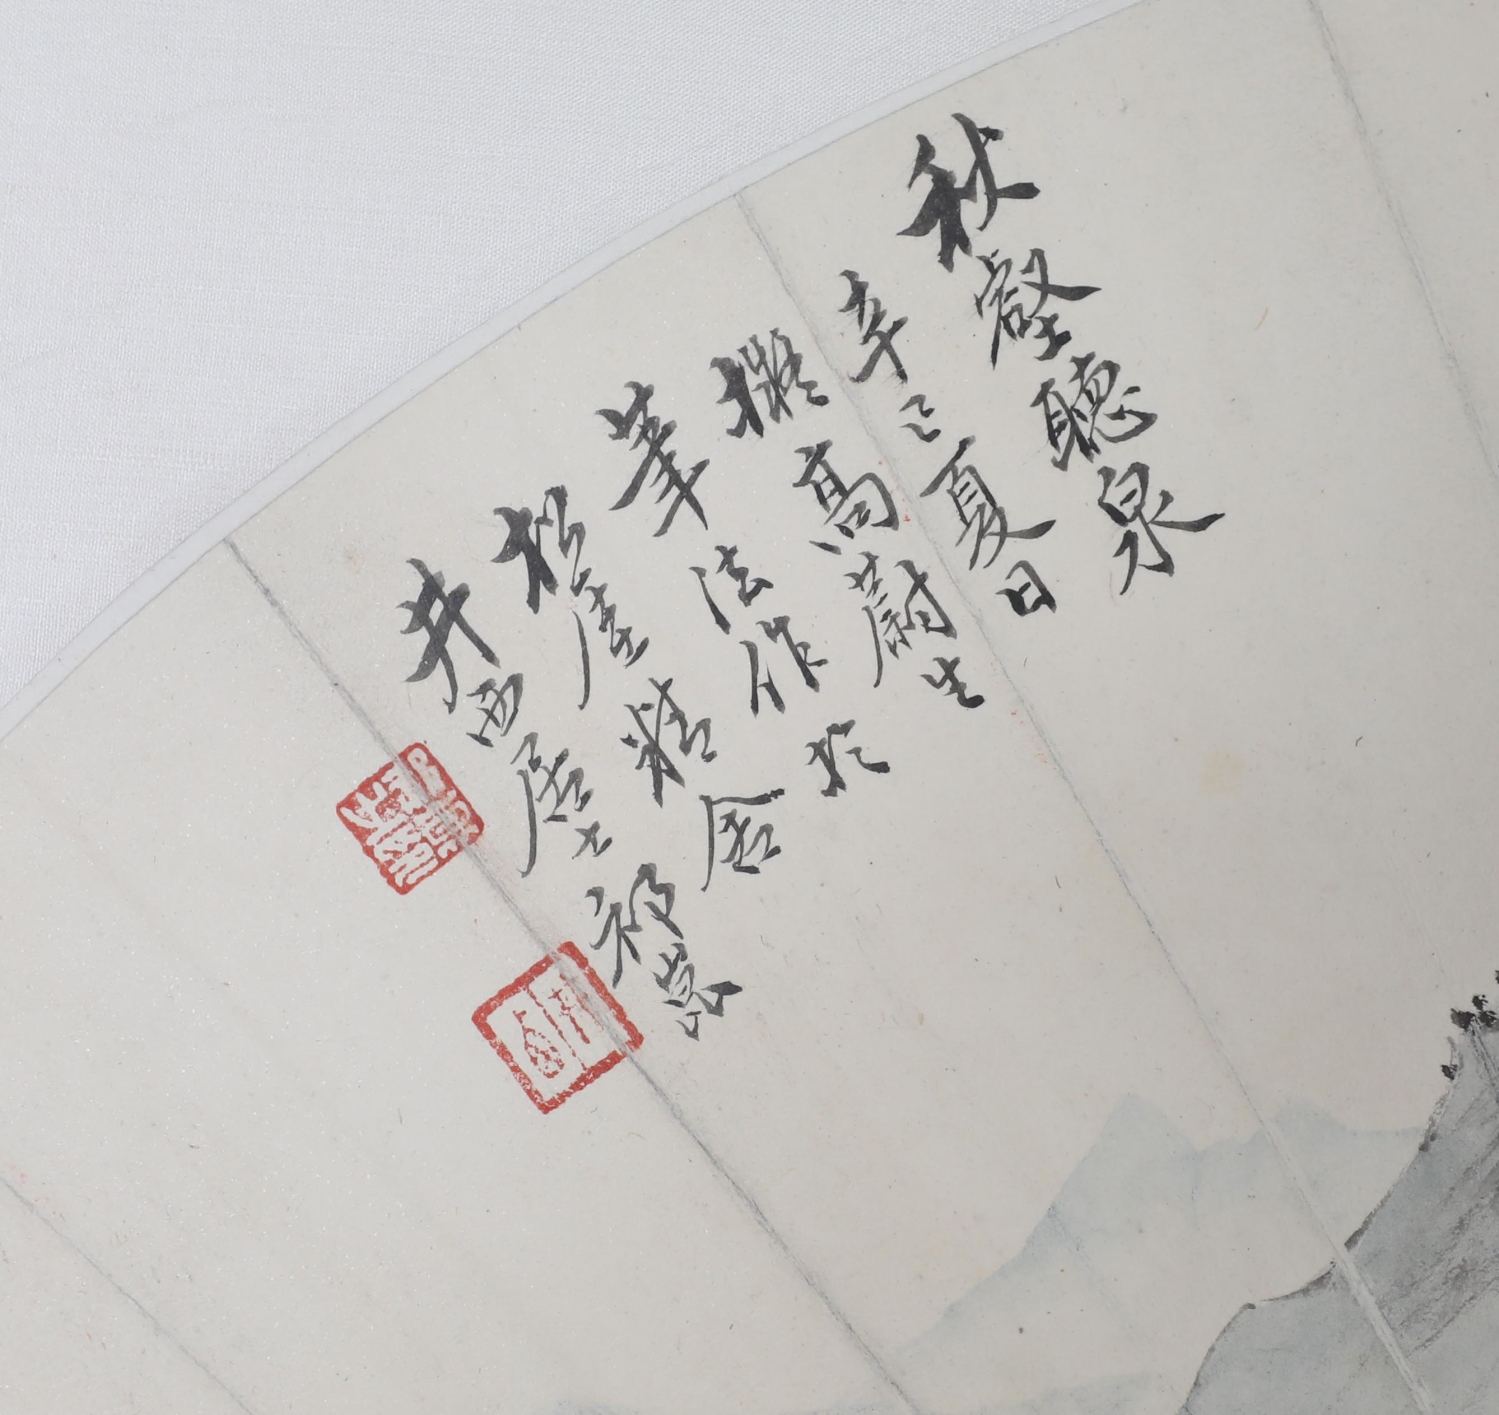 秋壑聽泉
辛巳夏日
擬高蔚生
筆法作於
松崖精舍
井西居士祁崑